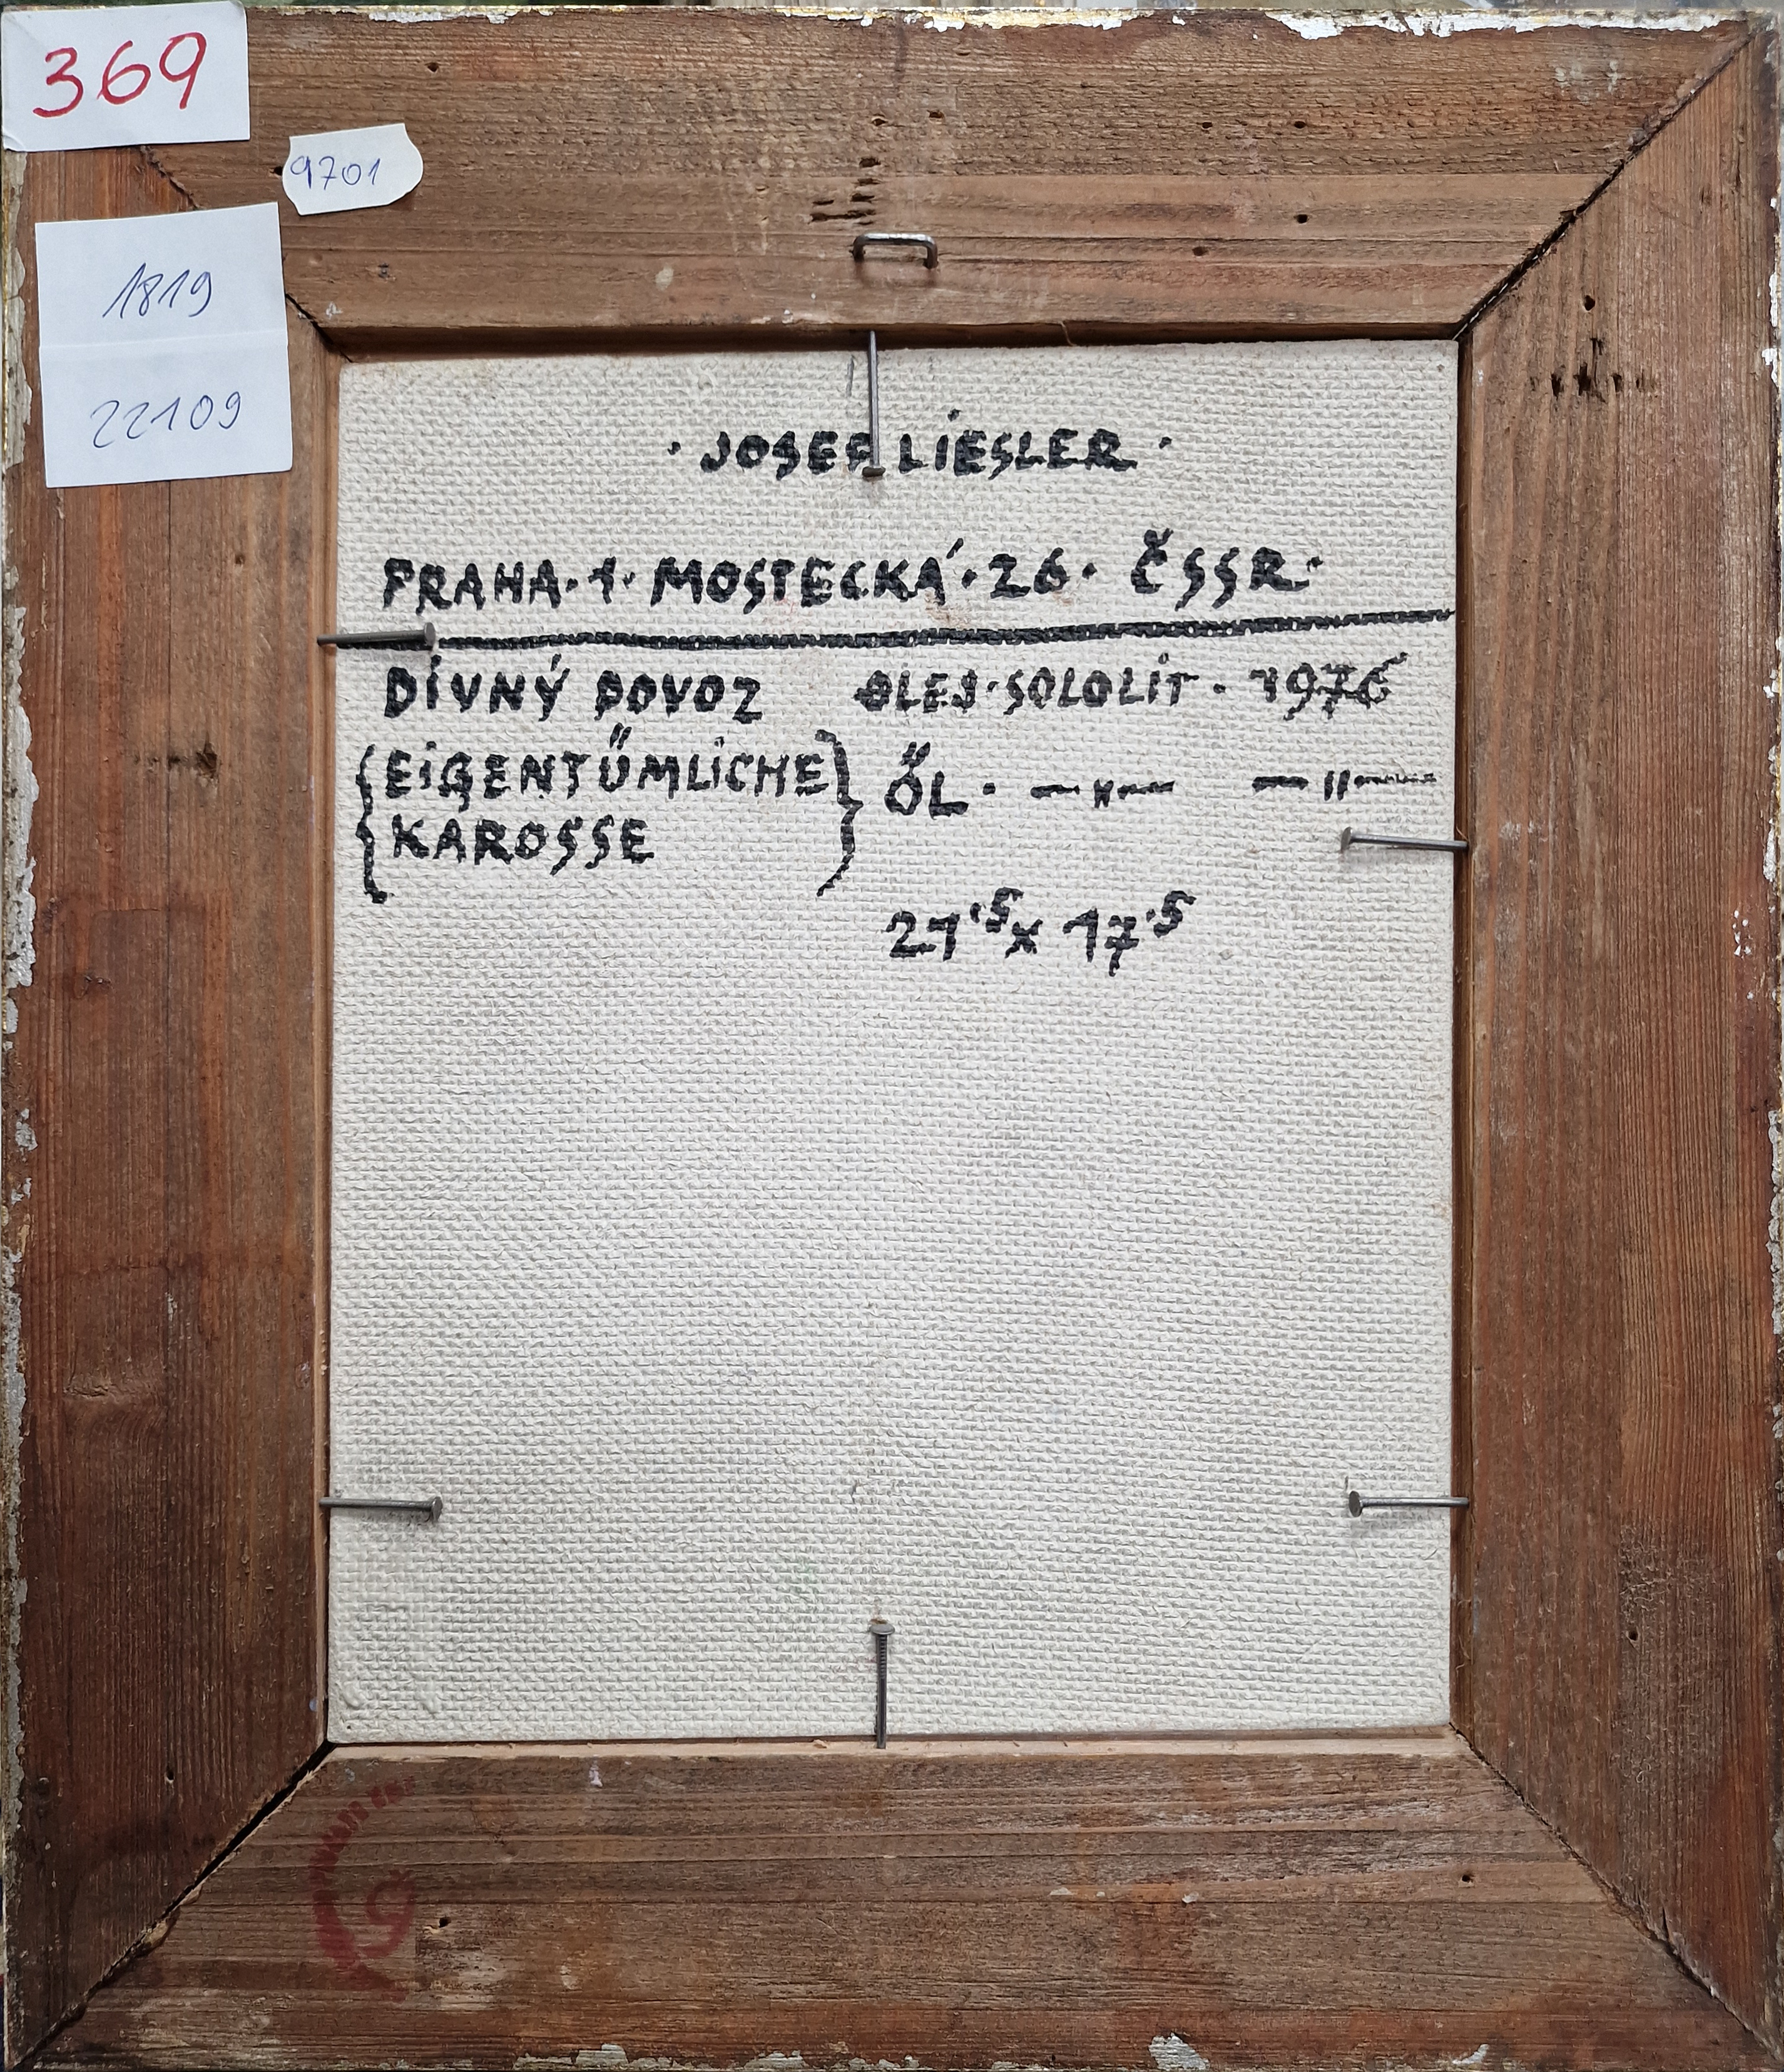 369
9701
1819
22109
· JOSEF LIESLER ·
PRAHA · 1 · MOSTECKÁ · 26 · ČSSR ·
DÍVNÝ POVOZ OLEJ · SOLOLIT · 1976
{EIGENTÜMLICHE} ÖL · —〃— —〃—
KAROSSE
21,5 x 17,5